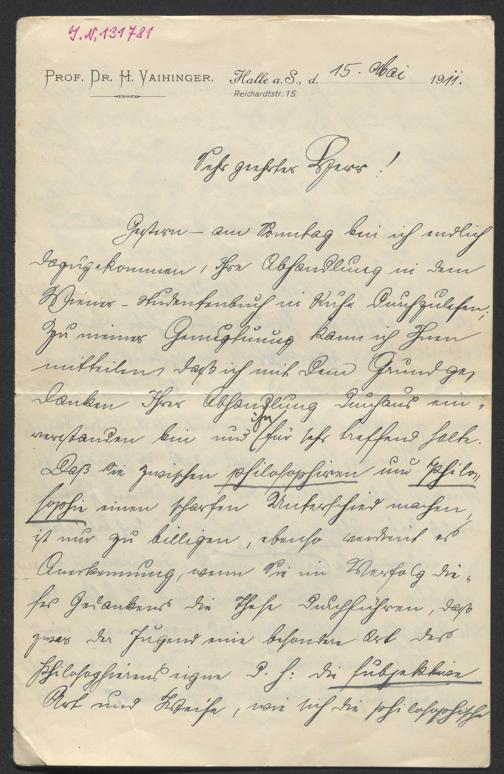 J.N. 131781
PROF. DR. H. VAIHINGER.
Halle a. S., d. 15. Mai 1911.
Reichardtstr. 15.
Sehr geehrter Herr!
Gestern – am Sonntag bin ich endlich
dazugekommen, Ihre Abhandlung in dem
Wiener-Studentenbuch in Ruhe durchzulesen;
zu meiner Genugtuung kann ich Ihnen
mitteilen, daß ich mit dem Grundge-
danken Ihrer Abhandlung durchaus ein-
verstanden bin und ihn für sehr treffend halte.
Daß Sie zwischen philosophiren und Philo-
sophie einen scharfen Unterschied machen,
ist nur zu billigen, ebenso verdient es
Anerkennung, wenn Sie im Verfolg die-
ses Gedankens die These durchführen, daß
zwar der Jugend eine besondere Art des
Philosophierens eigne d. h. die subjektive
Art und Weise, wie sich die philosophische